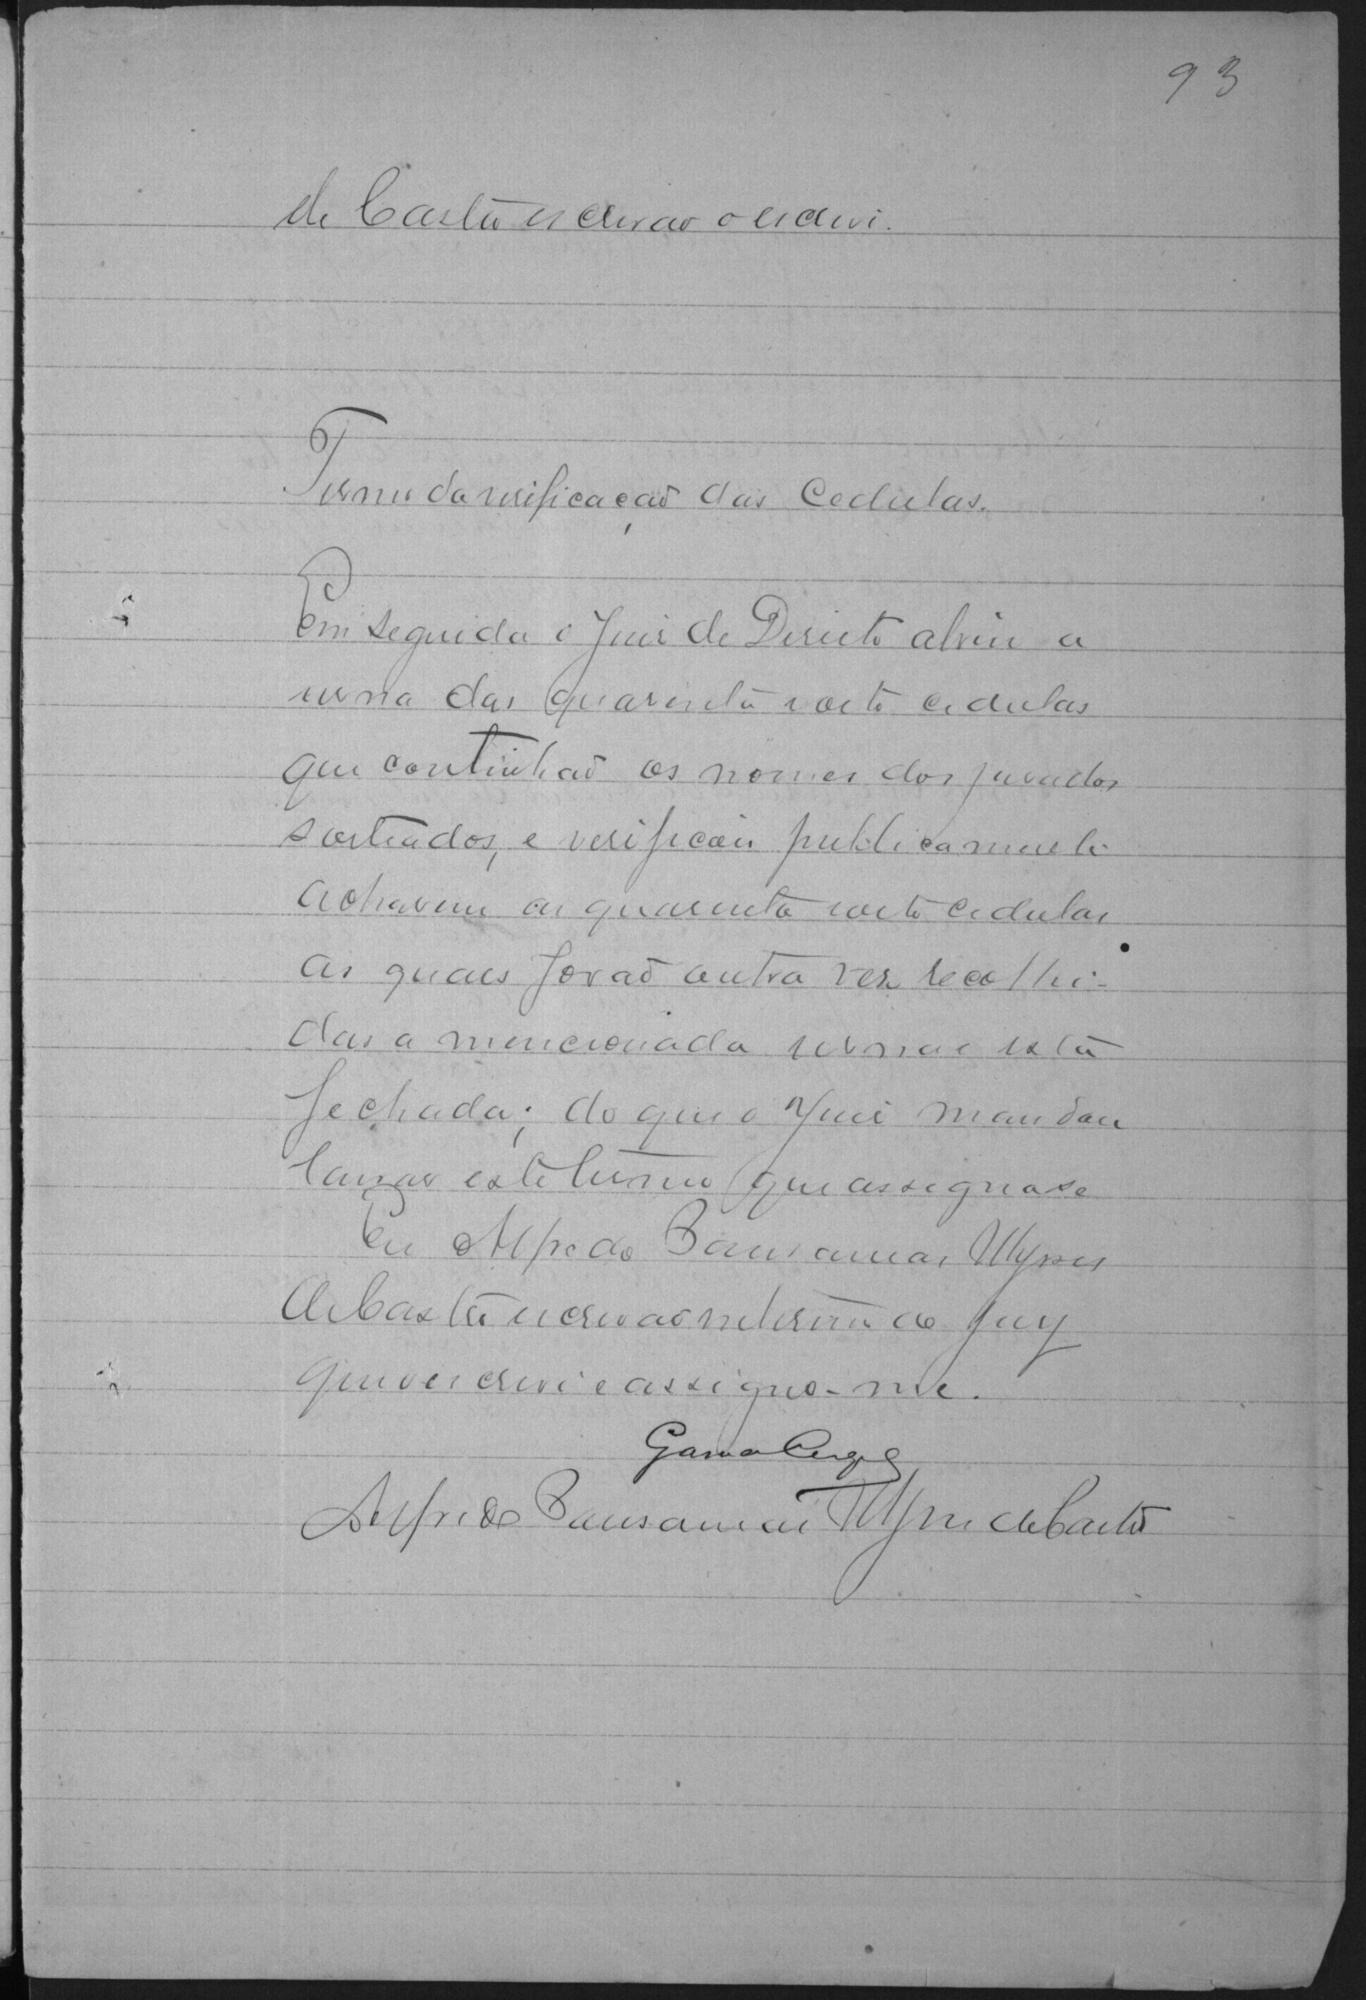 93
de Castro escrivão o escrevi.
Termo da verificação das Cedulas.
Em seguida o Juiz de Direito abriu a
urna das quarenta e oito cedulas
que continhaõ os nomes dos jurados
sorteados, e verificou publicamente
acharem as quarenta e oito cedulas
as quaes foraõ outra vez recolhi-
das a mencionada urna e esta
fechada; do que o Juiz mandou
lavrar este termo que assigna se
Eu Alfredo Ulysses
de Castro escrivão interino do Jury
que o escrevi e assigno-me.
Gama
Alfredo Ulysses de Castro